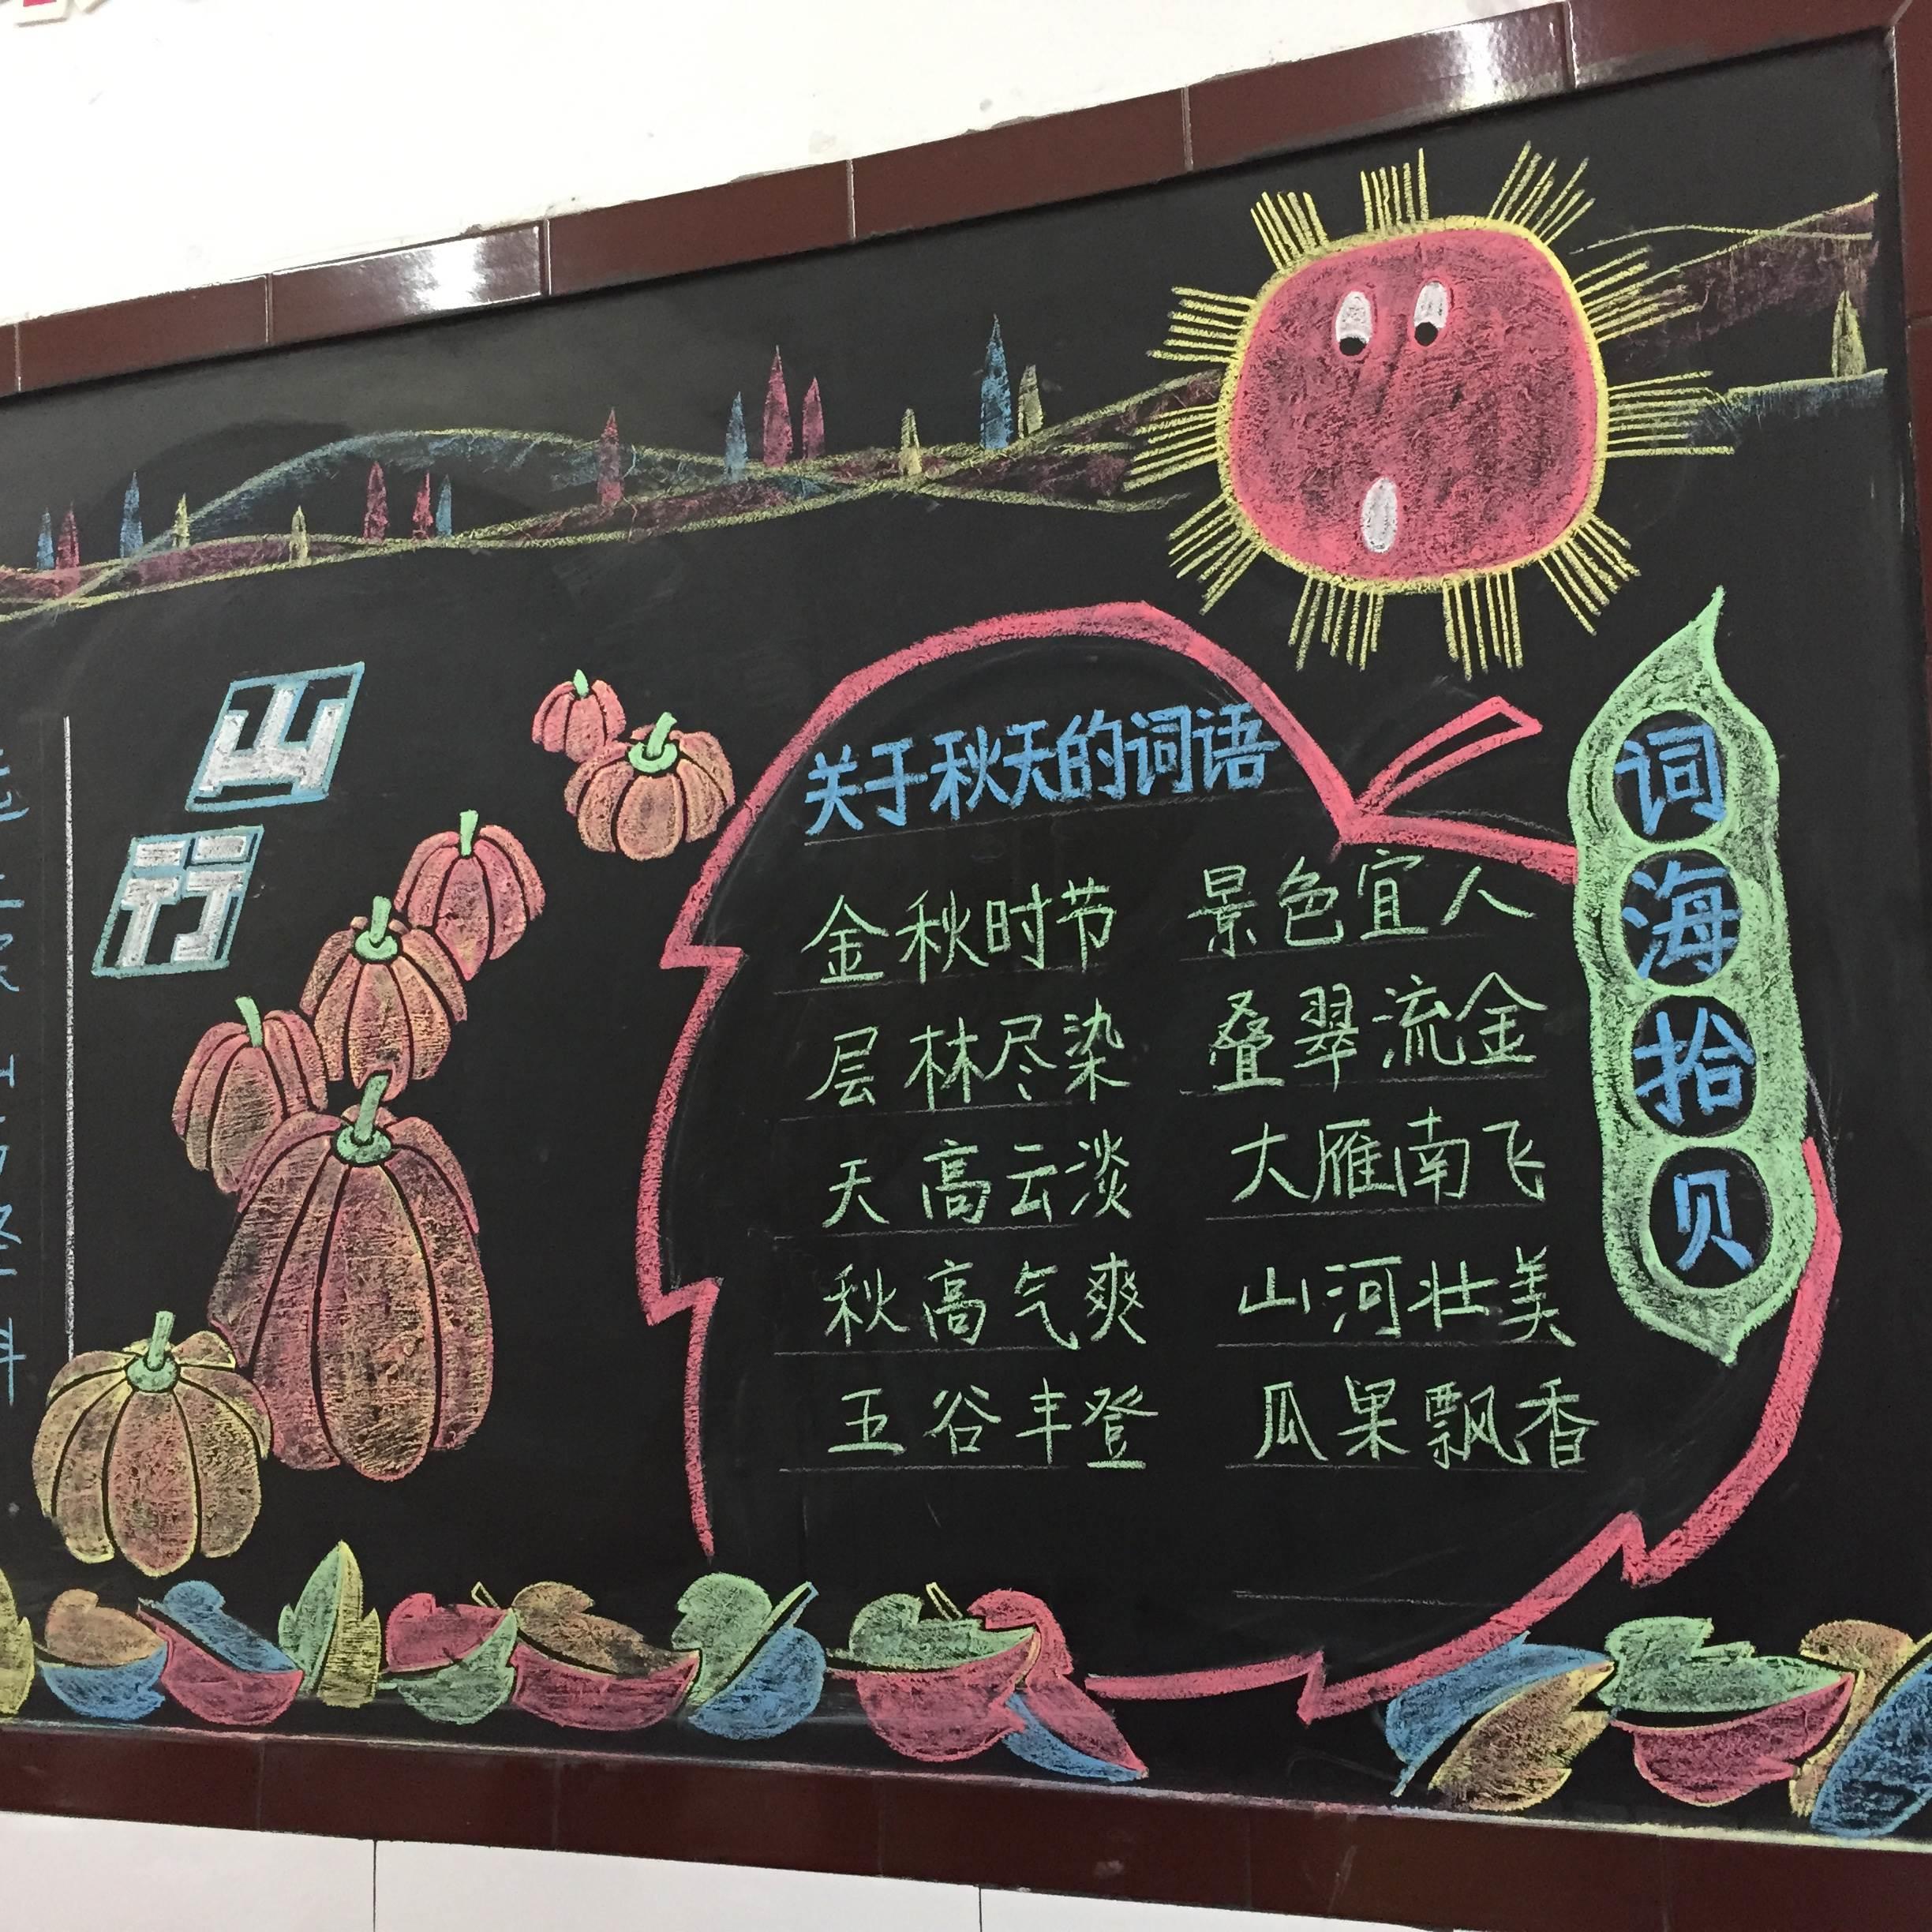 山行
关于秋天的词语
金秋时节 景色宜人
层林尽染 叠翠流金
天高云淡 大雁南飞
秋高气爽 山河壮美
五谷丰登 瓜果飘香
词海拾贝